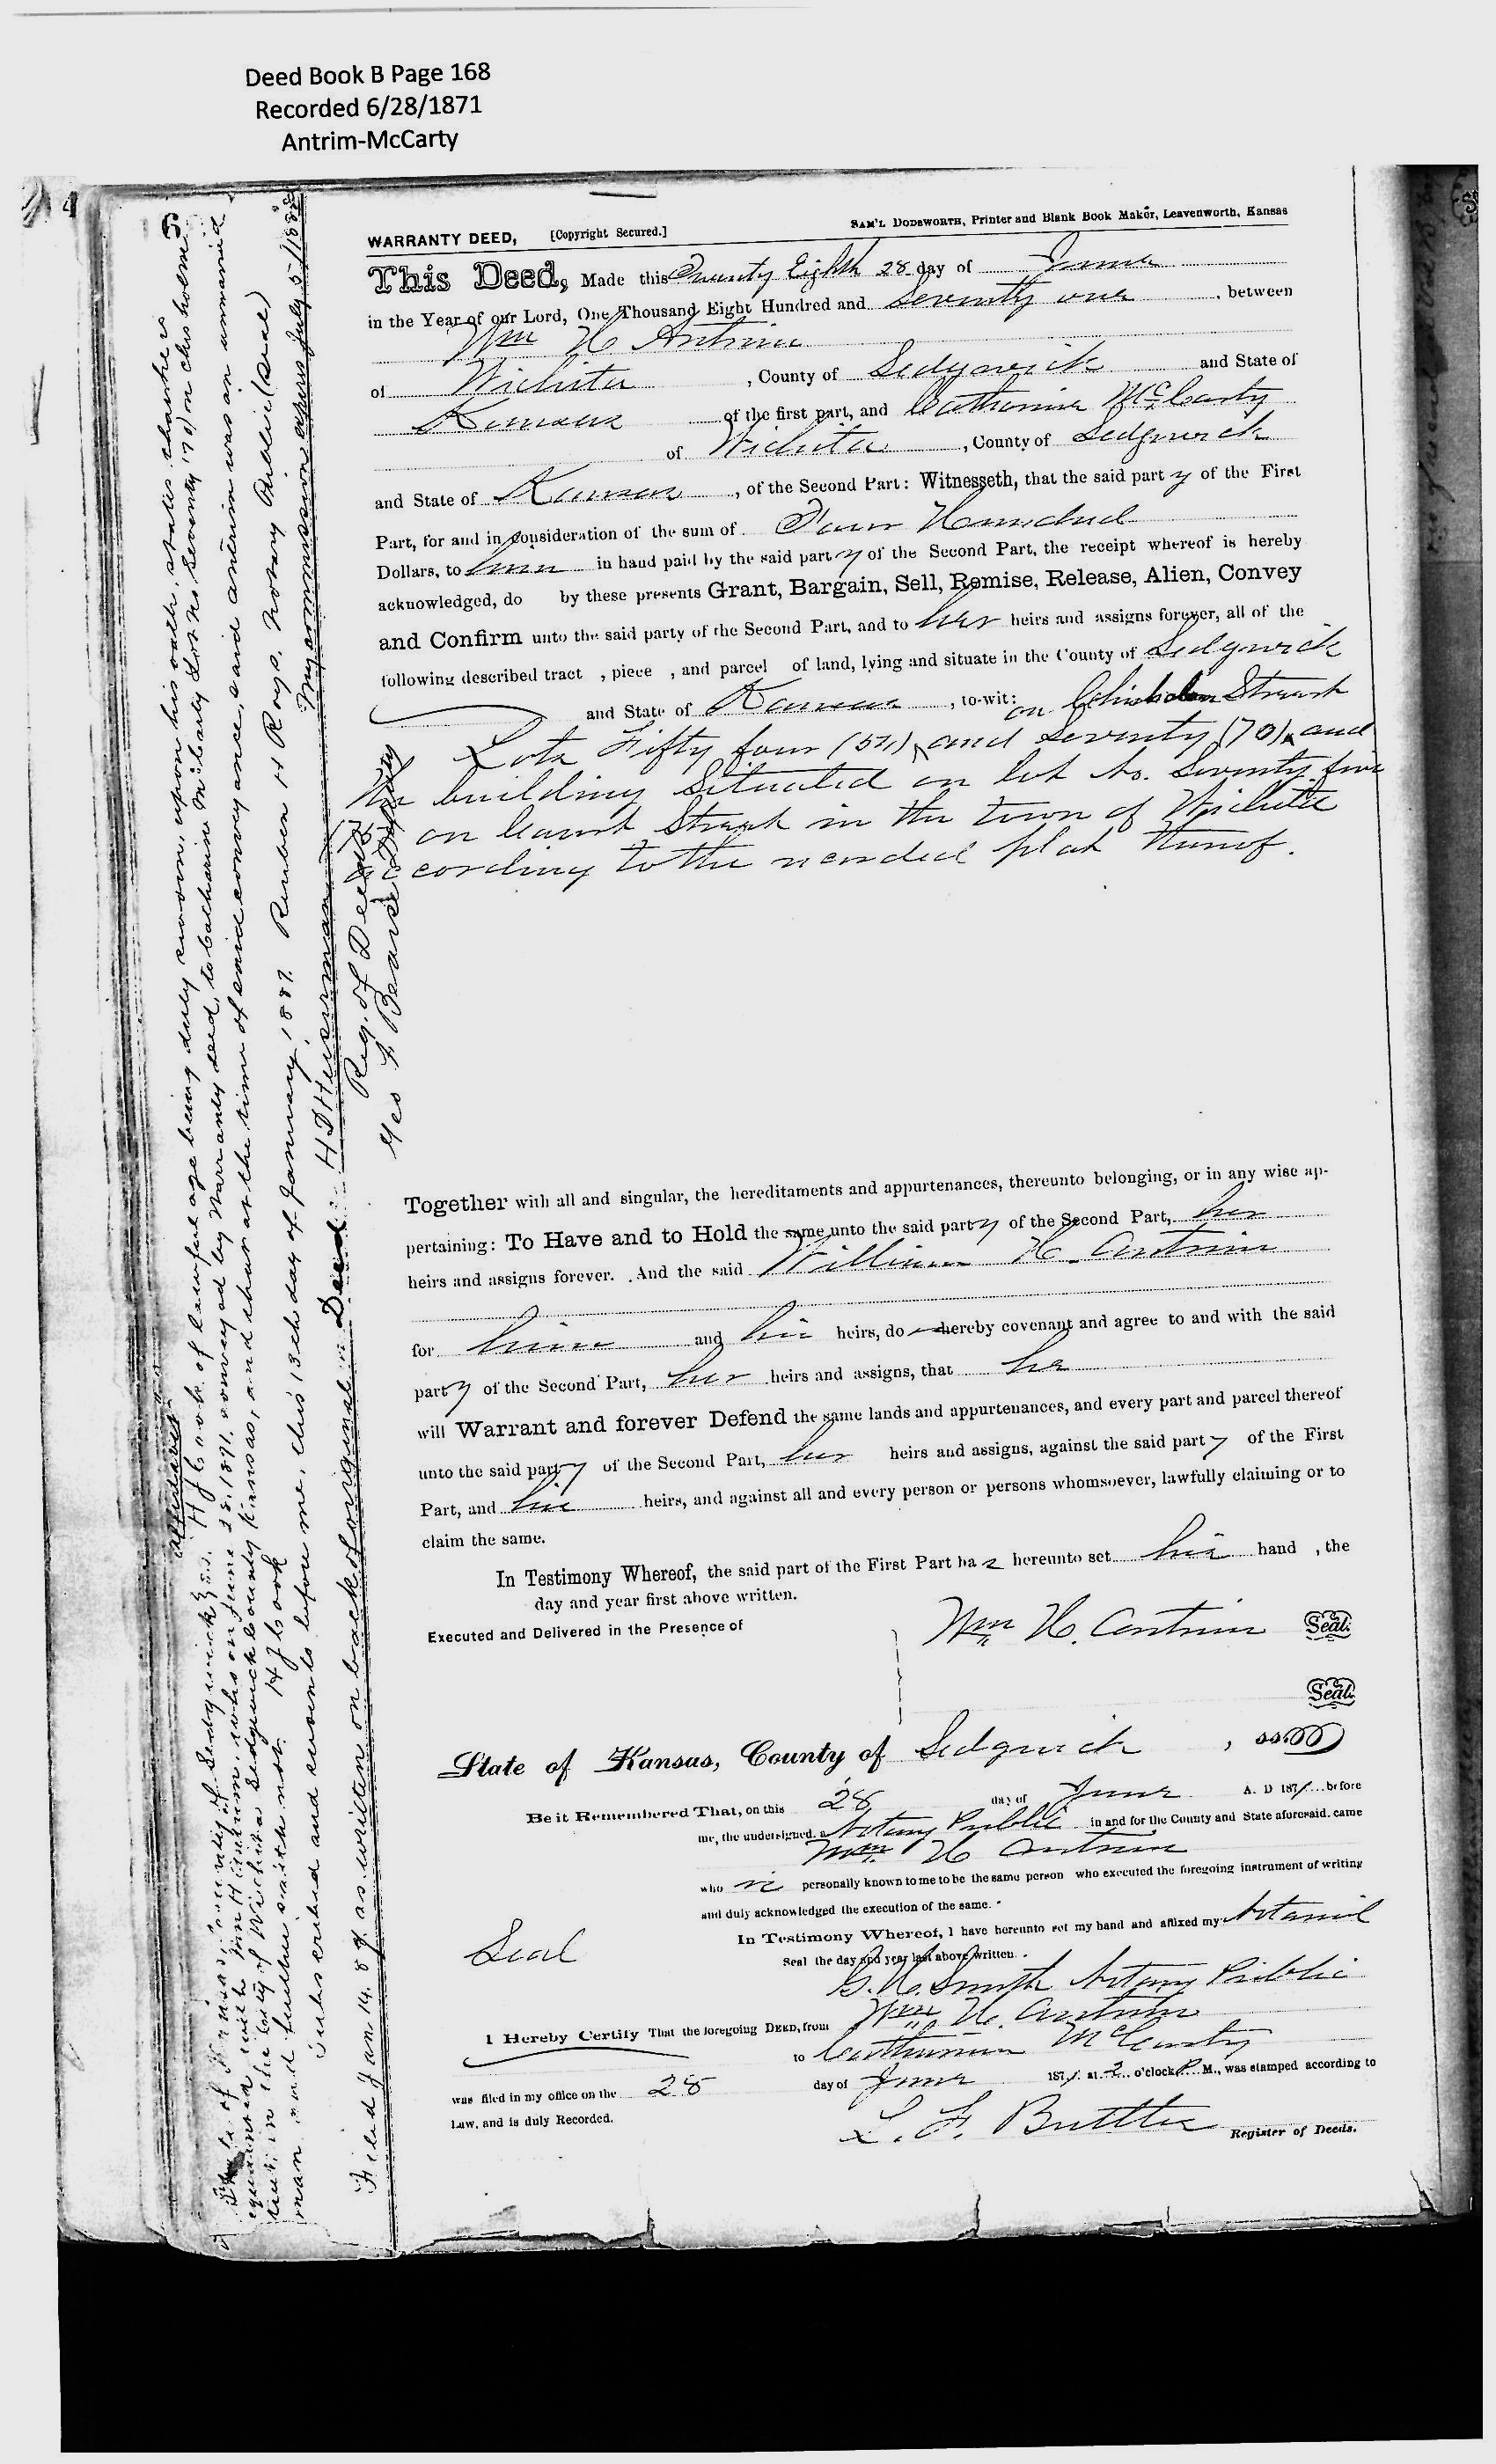 Deed Book B Page 168
Recorded 6/28/1871
Antrim-McCarty
SAM'L DODSWORTH, Printer and Blank Book Maker, Leavenworth, Kansas
WARRANTY DEED, [Copyright Secured.]
This Deed, Made this Twenty Eighth 28 day of June
in the Year of our Lord, One Thousand Eight Hundred and Seventy one, between
Wm H Antrim
of Wichita, County of Sedgwick and State of
Kansas of the first part, and Catharine McCarty
of Wichita, County of Sedgwick
and State of Kansas, of the Second Part: Witnesseth, that the said party of the First
Part, for and in consideration of the sum of Four Hundred
Dollars, to him in hand paid by the said party of the Second Part, the receipt whereof is hereby
acknowledged, do by these presents Grant, Bargain, Sell, Remise, Release, Alien, Convey
and Confirm unto the said party of the Second Part, and to her heirs and assigns forever, all of the
following described tract , piece , and parcel of land, lying and situate in the County of Sedgwick
and State of Kansas, to-wit:
on Chisholm Street
Lots Fifty four (54) and Seventy (70) and
the building Situated on lot No. Seventy five
(75) on Court Street in the town of Wichita
according to the recorded plat thereof.
Together with all and singular, the hereditaments and appurtenances, thereunto belonging, or in any wise ap-
pertaining: To Have and to Hold the same unto the said party of the Second Part, her
heirs and assigns forever. And the said William H. Antrim
for him and his heirs, do hereby covenant and agree to and with the said
party of the Second Part, her heirs and assigns, that he
will Warrant and forever Defend the same lands and appurtenances, and every part and parcel thereof
unto the said party of the Second Part, her heirs and assigns, against the said party of the First
Part, and his heirs, and against all and every person or persons whomsoever, lawfully claiming or to
claim the same.
In Testimony Whereof, the said part of the First Part has hereunto set his hand , the
day and year first above written.
Executed and Delivered in the Presence of
Wm H. Antrim Seal.
Seal.
State of Kansas, County of Sedgwick, ss
Be it Remembered That, on this 28 day of June A. D 1871 before
me, the undersigned, a Notary Public in and for the County and State aforesaid, came
Wm H Antrim
who is personally known to me to be the same person who executed the foregoing instrument of writing
and duly acknowledged the execution of the same.
In Testimony Whereof, I have hereunto set my hand and affixed my Notarial
Seal the day and year last above written.
Seal
Smith Notary Public
I Hereby Certify That the foregoing DEED, from Wm H. Antrim
to Catharine McCarty
was filed in my office on the 28 day of June 1871 at 2 o'clock P M., was stamped according to
Law, and is duly Recorded.
L. F. Buttler Register of Deeds.
Affidavit
State of Kansas, county of Sedgwick } ss. H J Cook of lawful age being duly sworn, upon his oath, states that he is
acquainted with Wm H Antrim, who on June 28, 1871, conveyed by Warranty deed, to Catharine McCarty Lot No. Seventy (70) on Chisholm
street, in the City of Wichita Sedgwick County Kansas, and that at the time of said conveyance, said Antrim was an unmarried
man and further saith not. H J Cook
Subscribed and sworn to before me, this 13th day of January, 1887. Reuben H Roys. Notary Public (Seal)
My commission expires July 5/188
Filed Jan 14. 87 as written on back of original Deed. H D Heiserman
Reg. of Deeds
Geo F Bearse Deputy